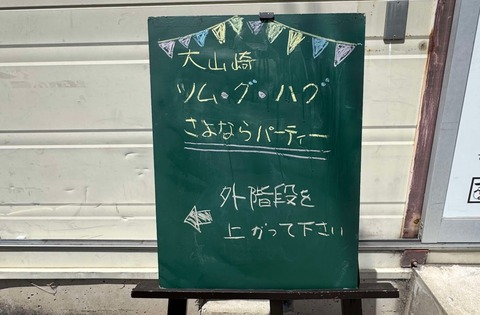 大山崎
ツム・グ・ハグ
さよならパーティー
外階段を
上がって下さい